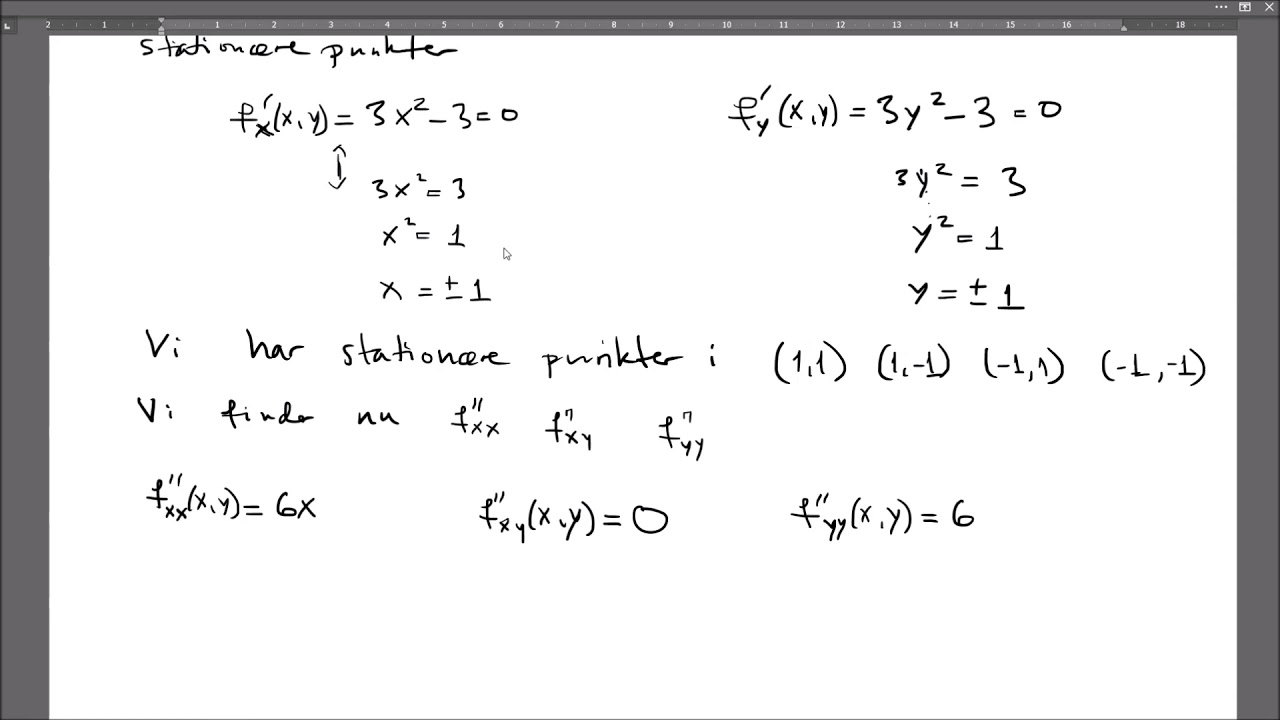 2 1 1 2 3 4 5 6 7 8 9 10 11 12 13 14 15 16 18
stationære punkter
f'x(x,y) = 3x² - 3 = 0 f'y(x,y) = 3y² - 3 = 0
3x² = 3 3y² = 3
x² = 1 y² = 1
x = ± 1 y = ± 1
Vi har stationære punkter i (1,1) (1,-1) (-1,1) (-1,-1)
Vi finder nu f''xx f''xy f''yy
f''xx(x,y) = 6x f''xy(x,y) = 0 f''yy(x,y) = 6